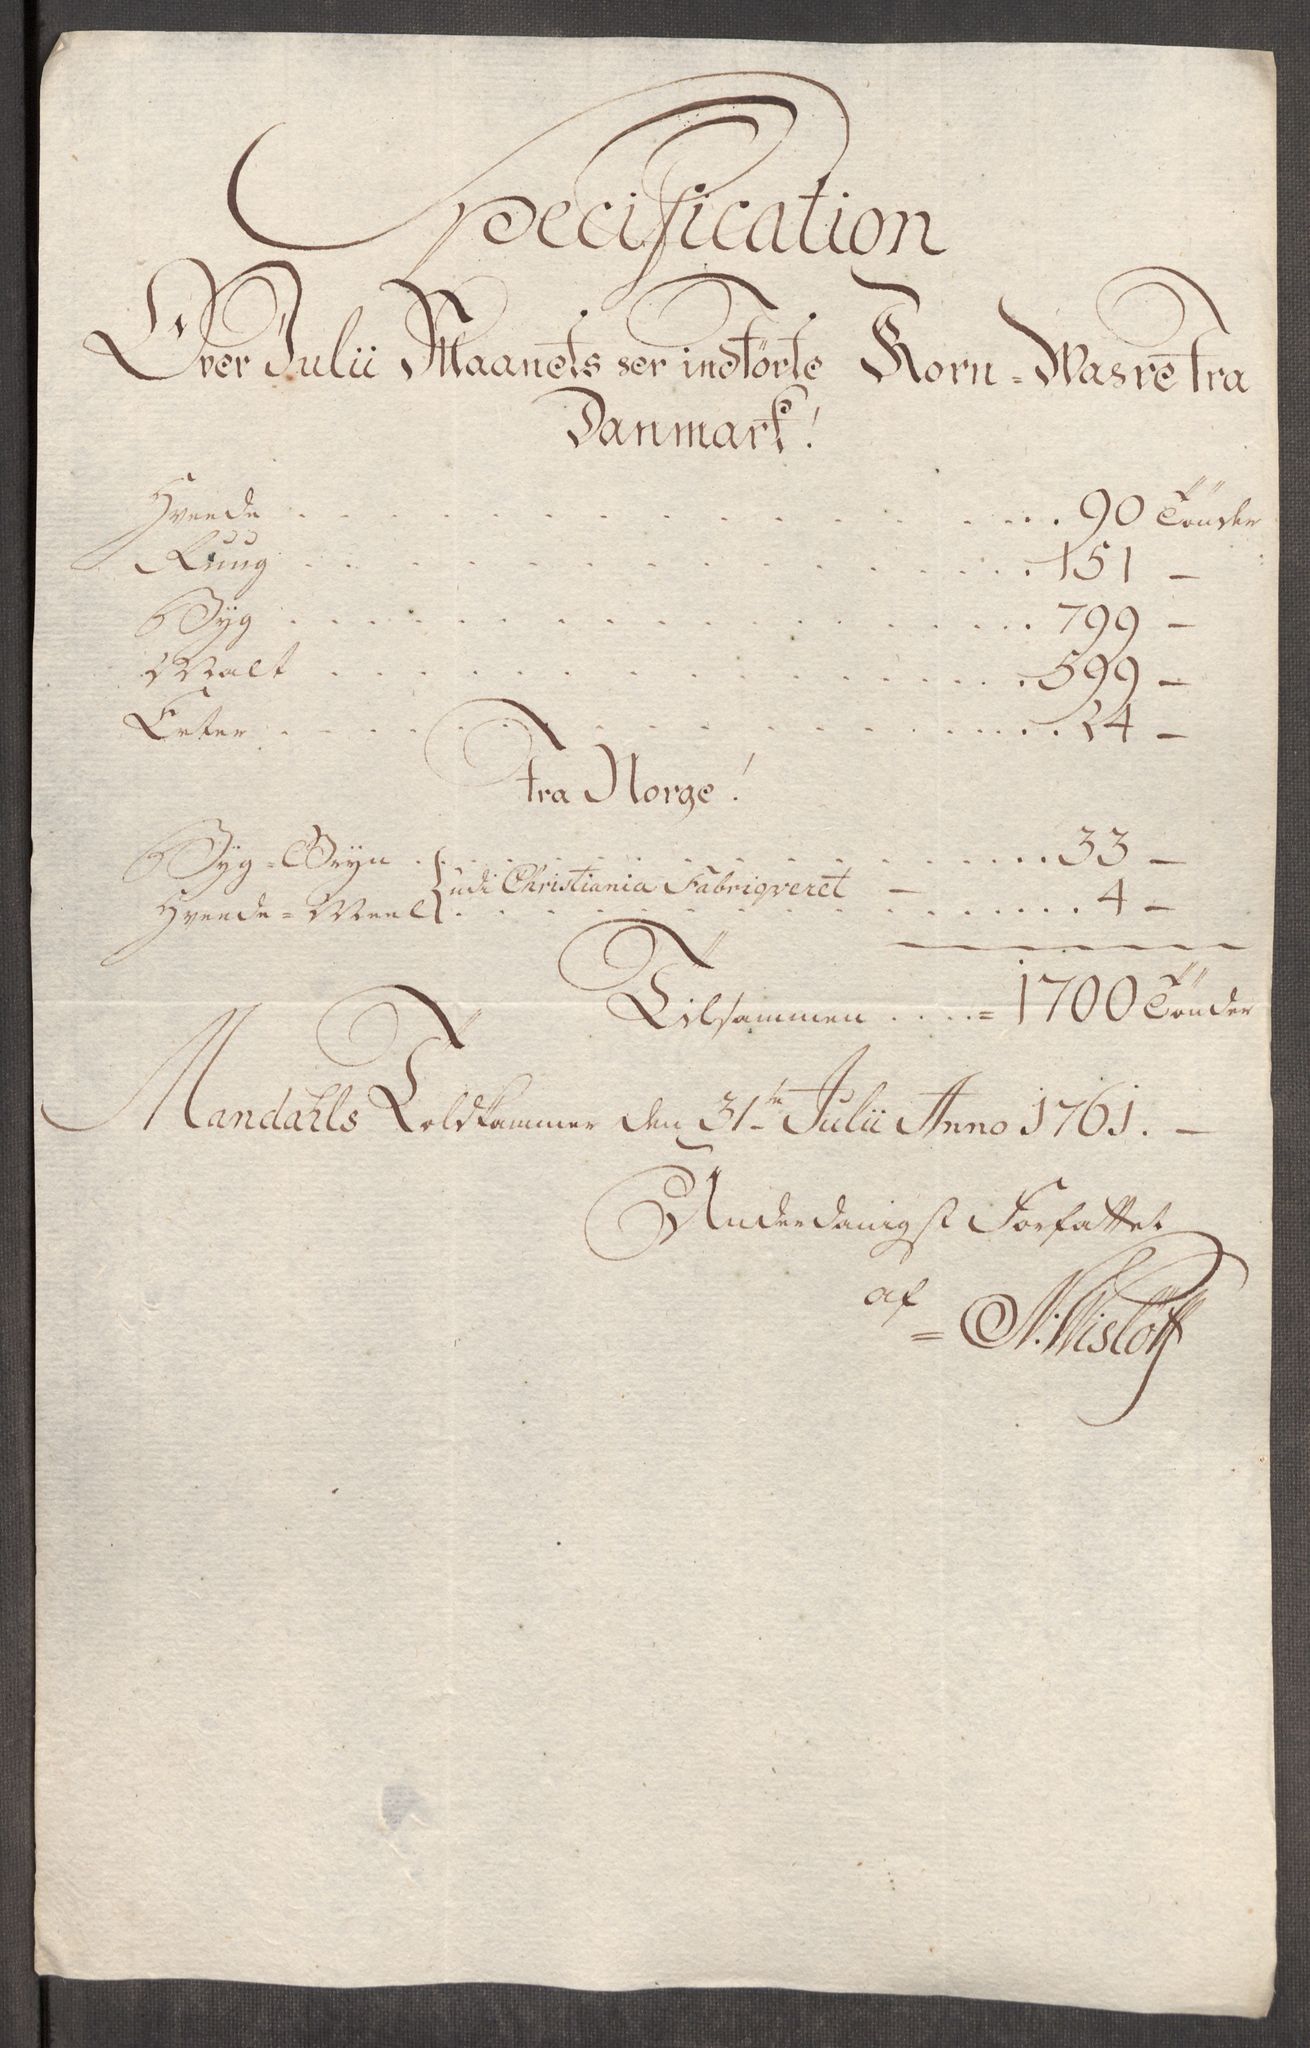 Specification
Over Julii Maanets her indførte Korn-Wahre fra
Danmark!
Hvede . . . 90 Tønder
Rúúg . . . 151 —
Byg . . . 799 —
Malt . . . 599 —
Erter . . . 24 —
fra Norge!
Byg-Gryn . . . 33 —
udi Christiania Fabriqveret —
Hveede-Meel . . . 4 —
Tilsammen . . . = 1700 Tønder
Mandahls Toldkammer den 31te Julii Anno 1761. —
Underdanigst Forfattet
af
= N: Wisløff